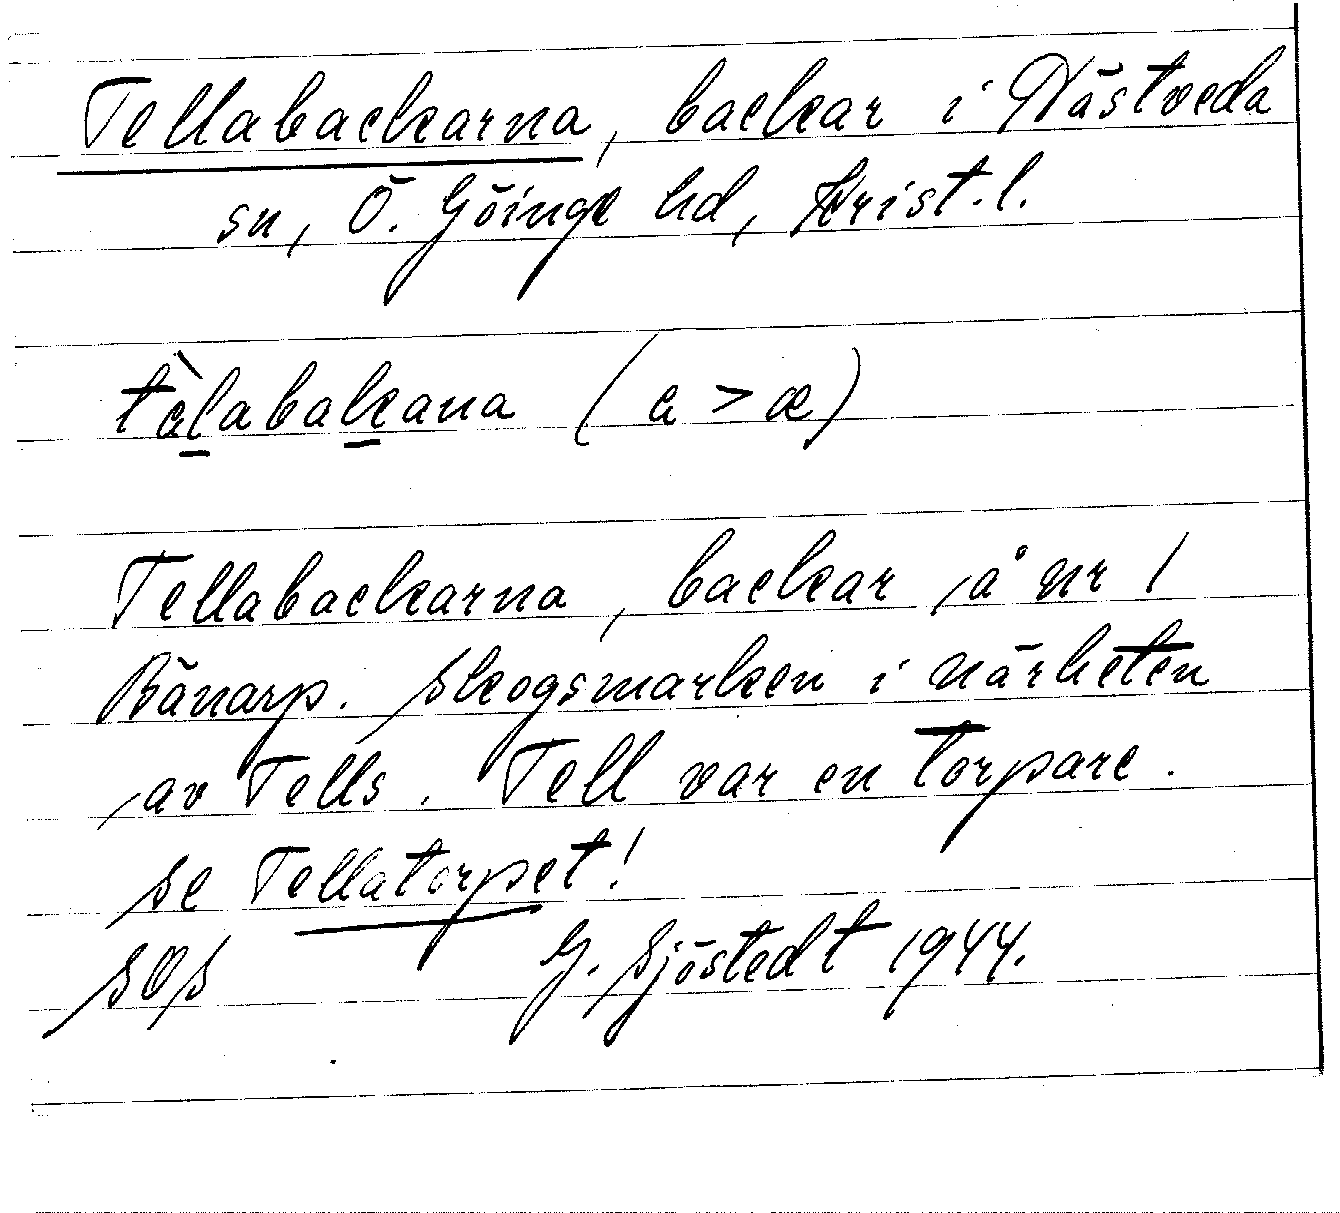 Tellabackarna, backar i Nästveda
sn, Ö. Göinge hd, Krist.l.
tàlabakana (a > æ)
Tellabackarna, backar å nr 1
Bänarp. Skogsmarken i närheten
av Tells. Tell var en torpare.
se Tellatorpet!
SOS G. Sjöstedt 1944.